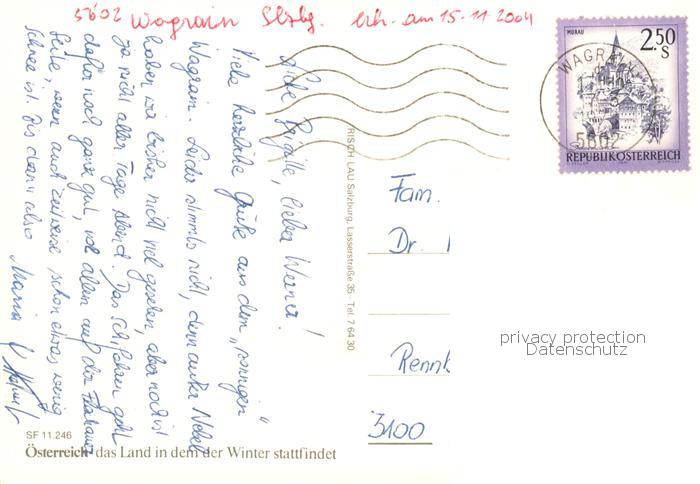 5602 Wagrain Slzbg. erh. am 15.11.2004
MURAU
2.50
S
REPUBLIK ÖSTERREICH
WAGRAIN
5602
Liebe Brigitte, lieber Werner!
Viele herzliche Grüße aus dem „sonnigen"
Wagrain. Leider stimmts nicht, denn außer Nebel
haben wir bisher nicht viel gesehen, aber noch ist
ja nicht aller Tage Abend. Das Schifahren geht
dafür noch ganz gut, vor allem auf der
Seite, wenn auch zeitweise schon etwas wenig
Schnee ist. Bis dann also Maria
RISCH-LAU Salzburg, Lasserstraße 35 Tel. 7 64 30
Fam.
Dr.
Rennb
3100
privacy protection
Datenschutz
SF 11.246
Österreich - das Land in dem der Winter stattfindet